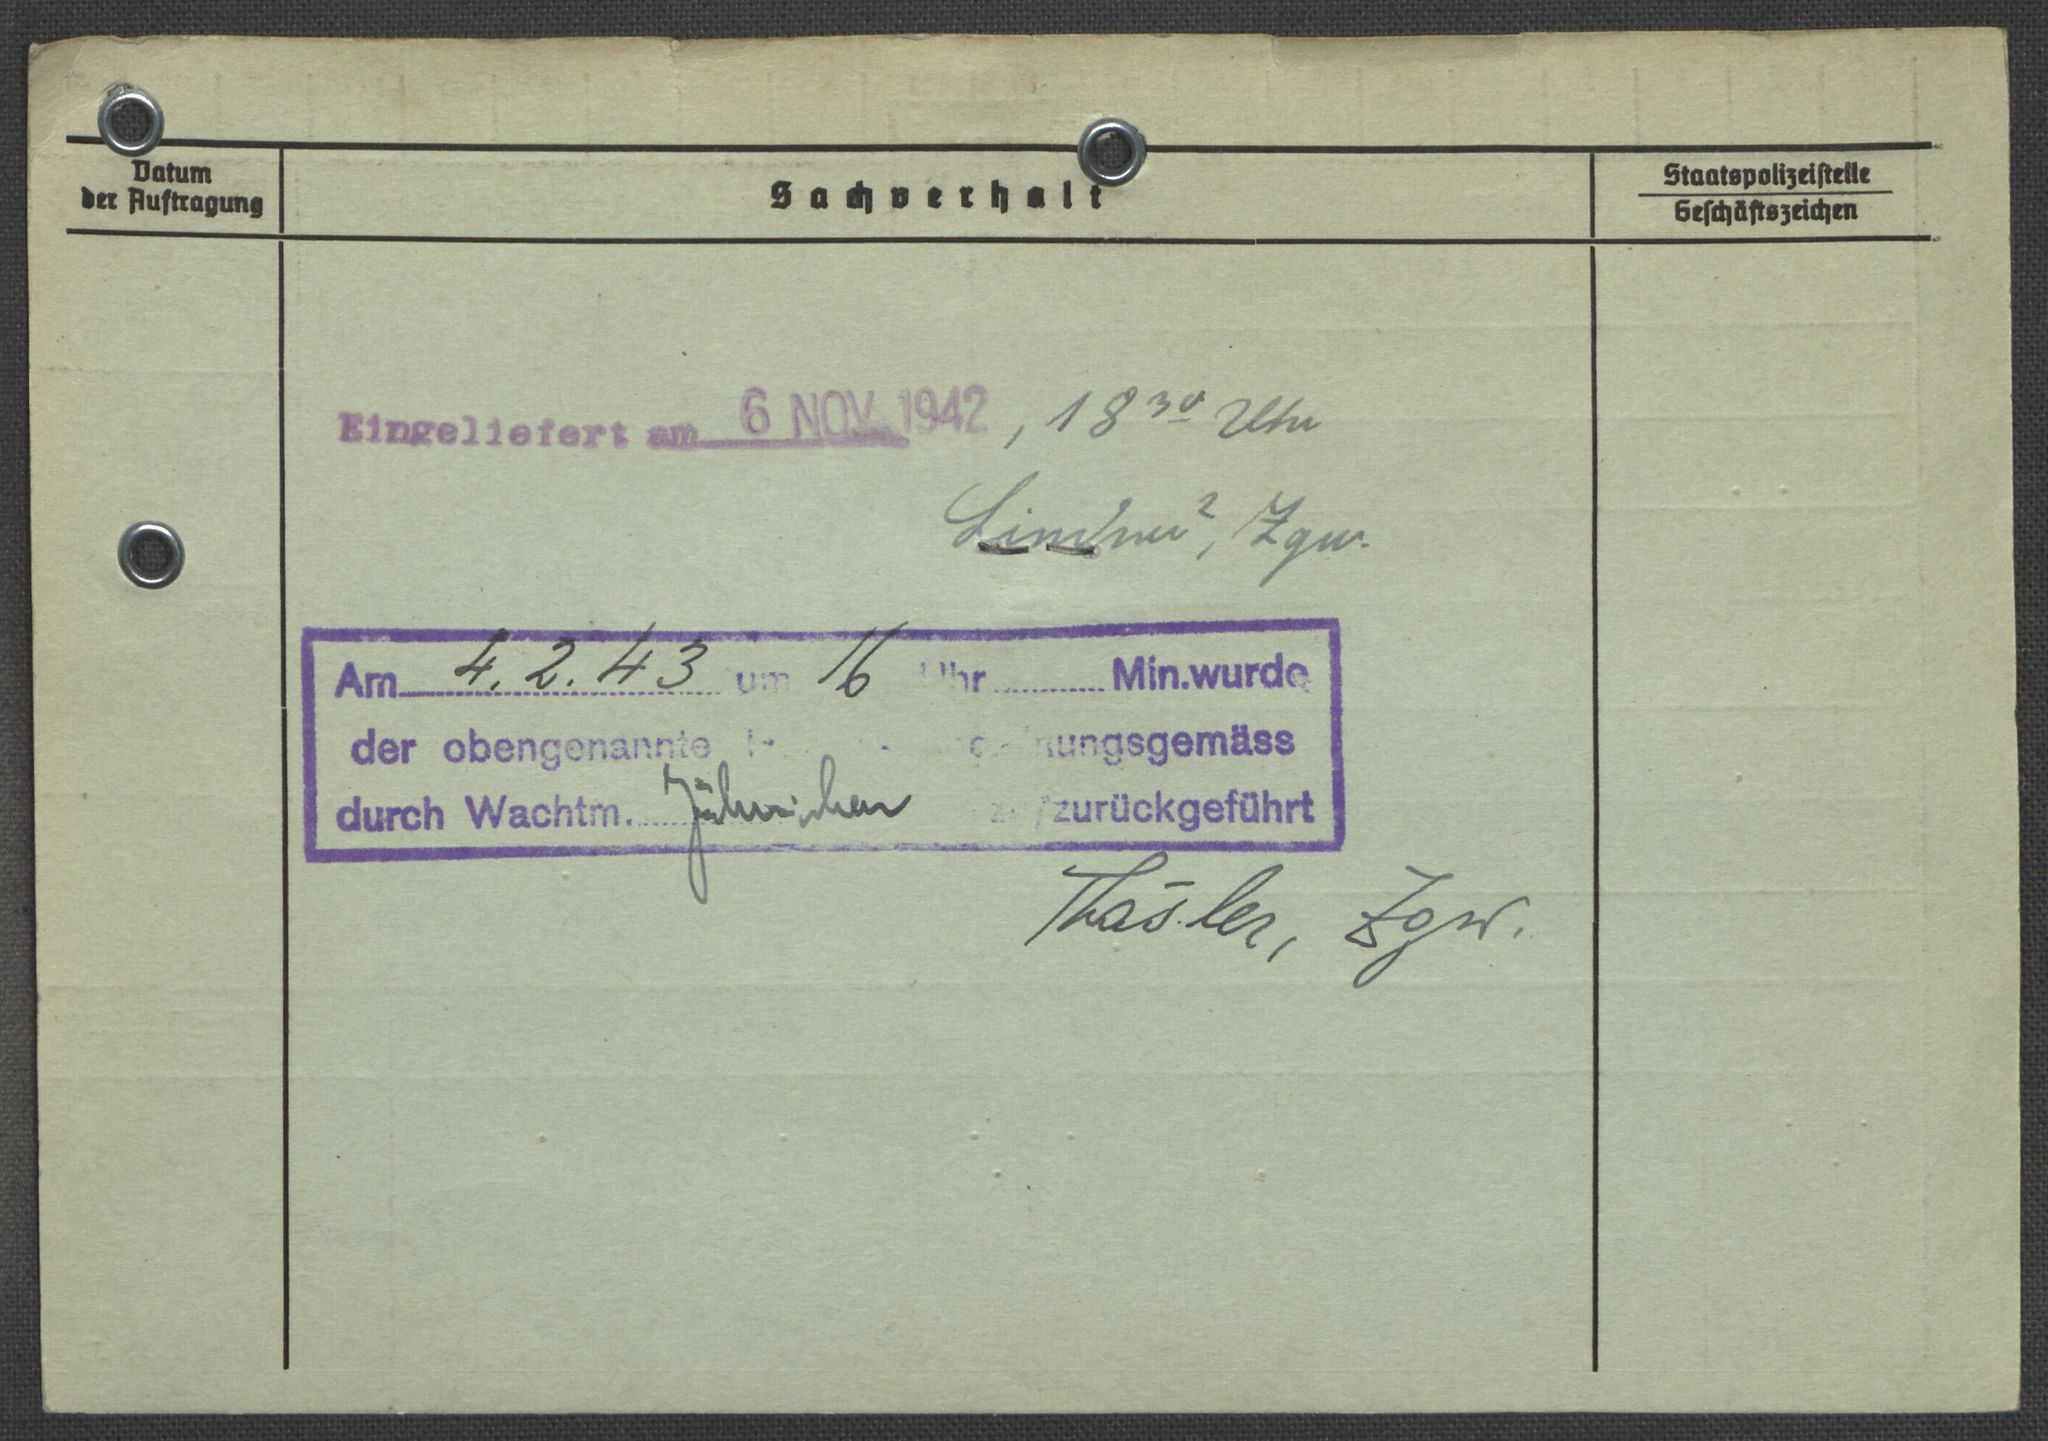 Datum
der Auftragung
Sachverhalt
Staatspolizeistelle
Geschäftszeichen
Eingeliefert am 6 NOV. 1942, 18³⁰ Uhr
Zgw.
Am 4.2.43 um 16 Uhr Min. wurde
der obengenannte nungsgemäss
durch Wachtm. /zurückgeführt
Zgw.